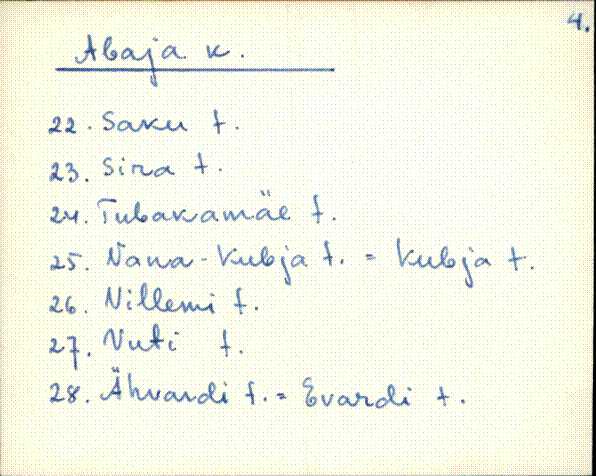 4.
Abaja k.
22. Saku t.
23. Sira t.
24. Tubakamäe t.
25. Vana-Kubja t. = Kubja t.
26. Villemi t.
27. Vuti t.
28. Ähvardi t. = Evardi t.